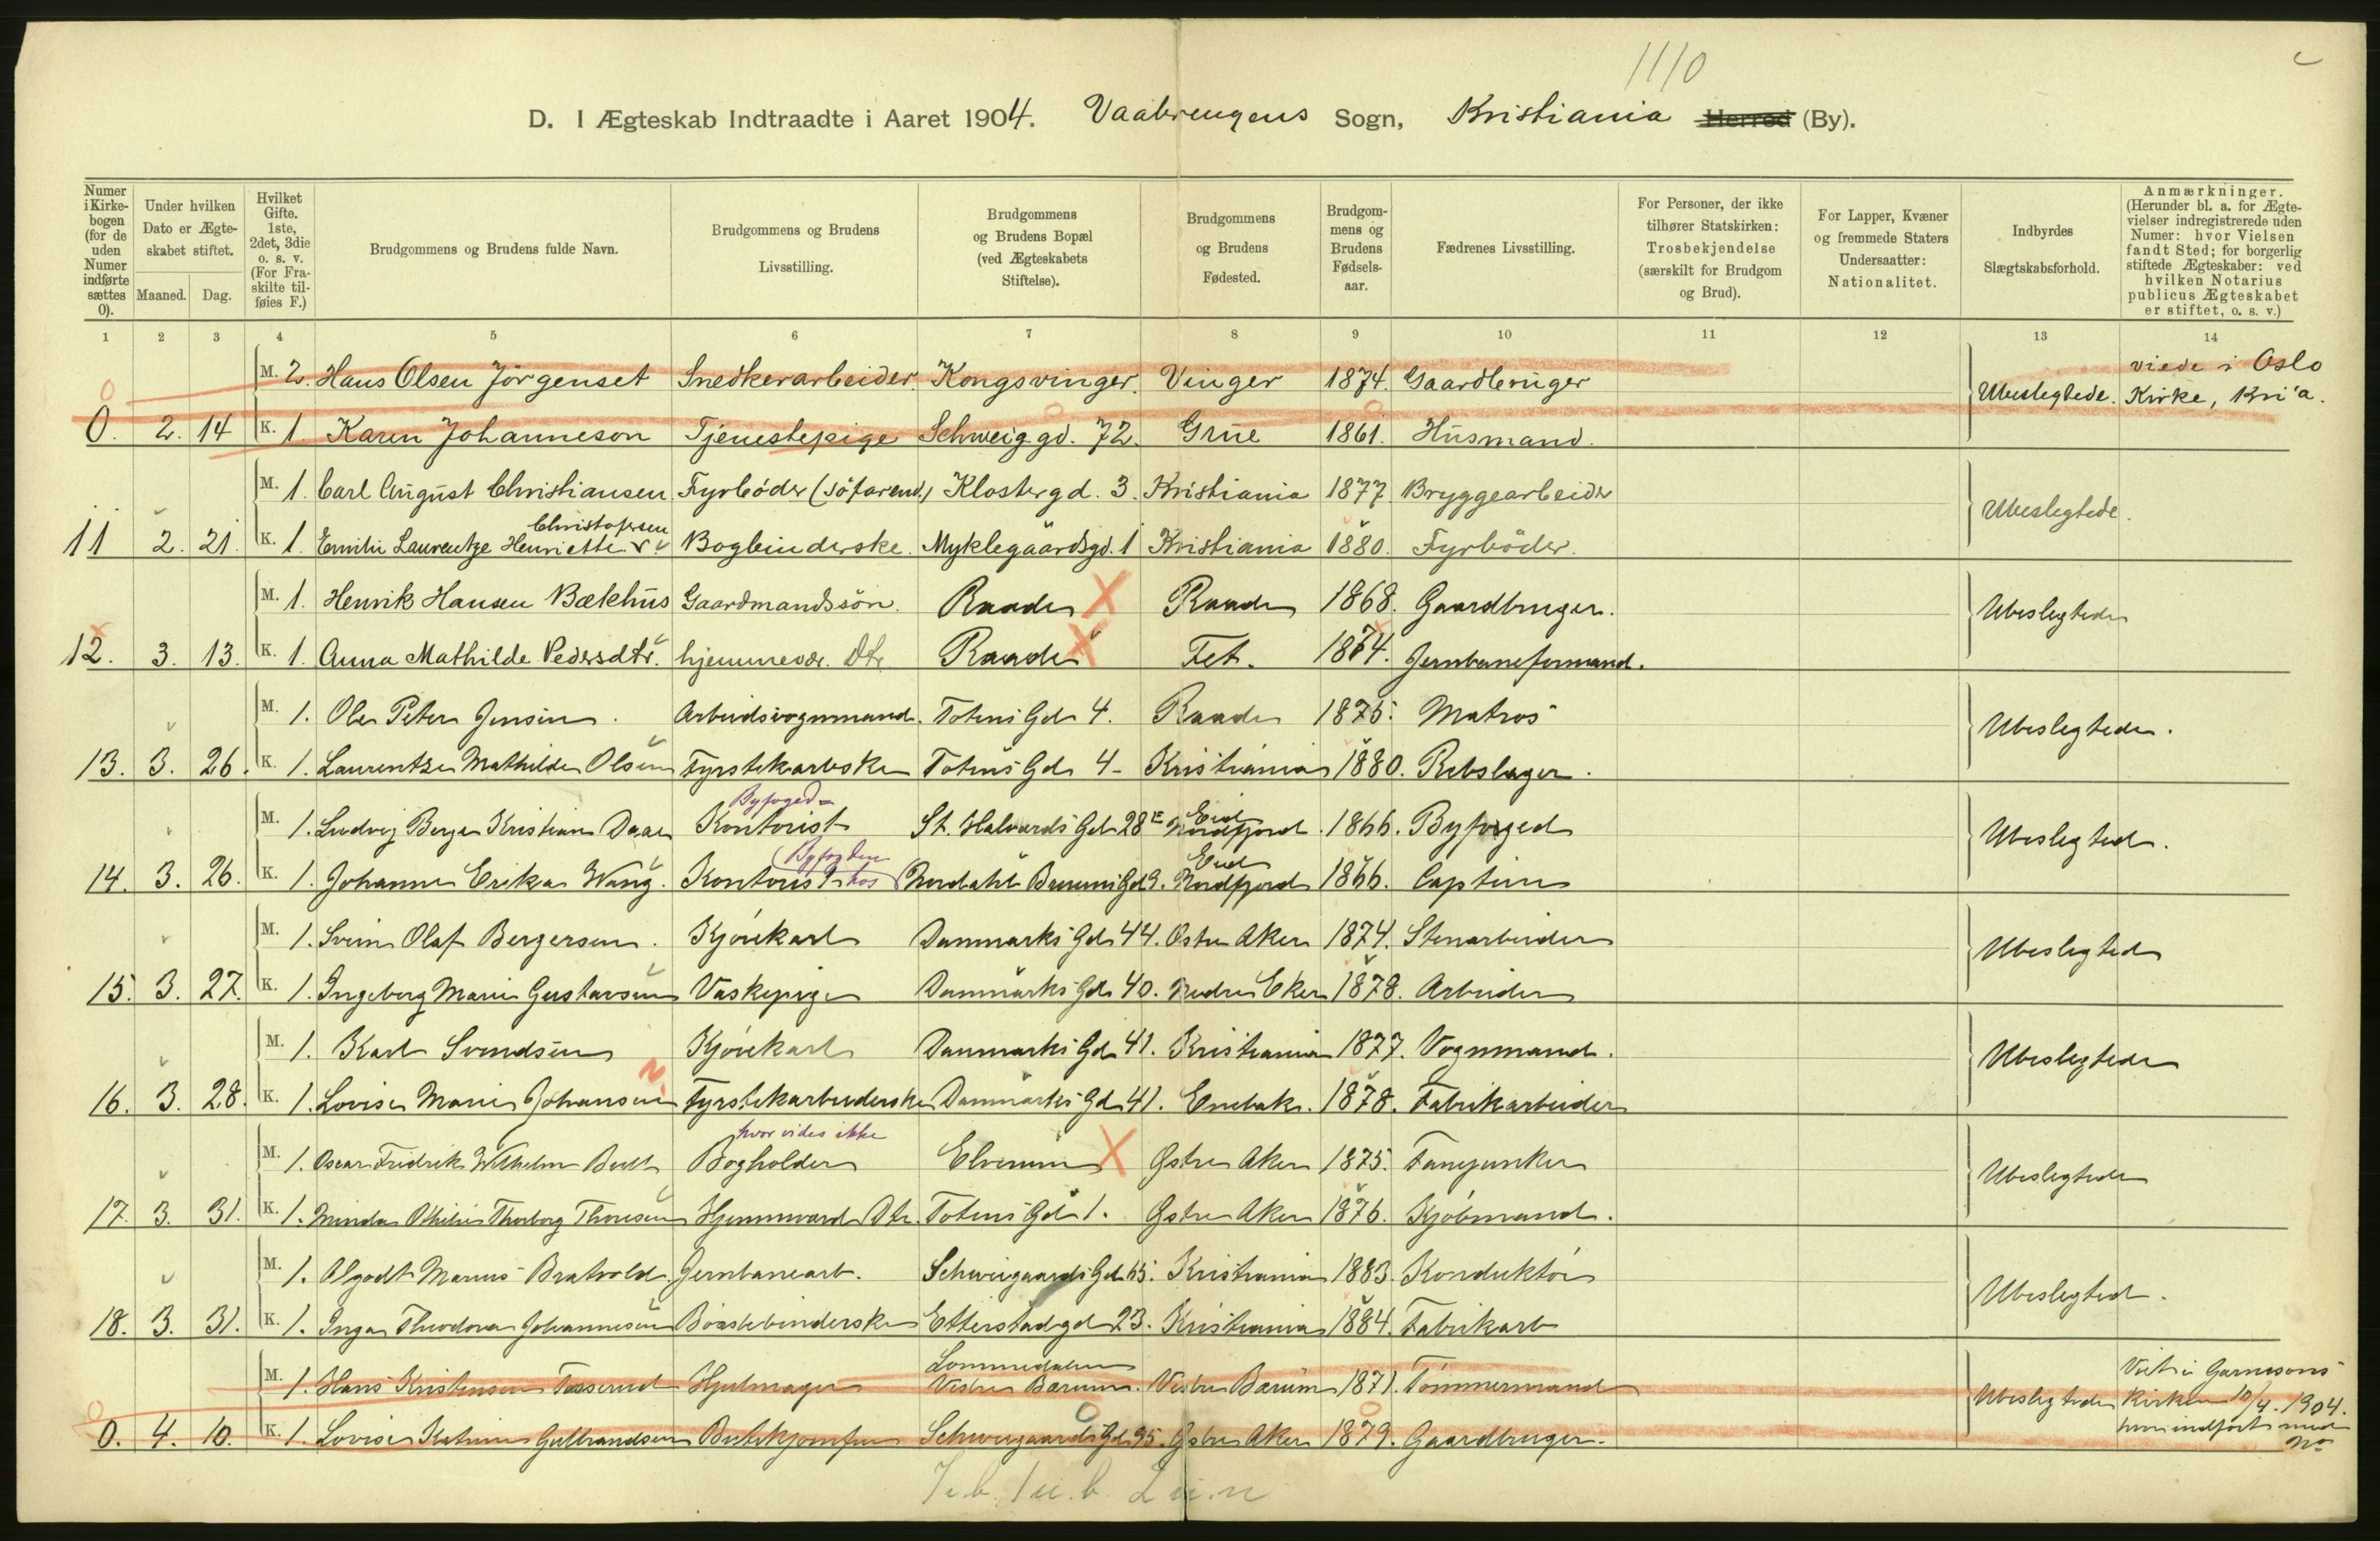 1110
D. I Ægteskab Indtraadte i Aaret 1904. Vaalerengens Sogn, Kristiania Herred (By).
Numer i Kirkebogen (for de uden Numer indførte sættes 0).
Under hvilken Dato er Ægteskabet stiftet.
Maaned. Dag.
Hvilket Gifte. 1ste, 2det, 3die o. s. v. (For Fraskilte tilføies F.)
Brudgommens og Brudens fulde Navn.
Brudgommens og Brudens Livsstilling.
Brudgommens og Brudens Bopæl (ved Ægteskabets Stiftelse).
Brudgommens og Brudens Fødested.
Brudgommens og Brudens Fødselsaar.
Fædrenes Livsstilling.
For Personer, der ikke tilhører Statskirken: Trosbekjendelse (særskilt for Brudgom og Brud).
For Lapper, Kvæner og fremmede Staters Undersaatter: Nationalitet.
Indbyrdes Slægtskabsforhold.
Anmærkninger. (Herunder bl. a. for Ægtevielser indregistrerede uden Numer: hvor Vielsen fandt Sted; for borgerlig stiftede Ægteskaber: ved hvilken Notarius publicus Ægteskabet er stiftet, o. s. v.)
1 2 3 4 5 6 7 8 9 10 11 12 13 14
M. 2. Hans Olsen Jörgenset Snedkerarbeider. Kongsvinger. Vinger 1874. Gaardbruger viede i Oslo
0. 2. 14 K. 1. Karen Johanneson Tjenestepige Schweig.gd. 72. Grue 1861. Husmand. Ubeslegtede. Kirke, Kri'a.
M. 1. Carl August Christiansen Fyrböder (söfarend.) Klostergd. 3. Kristiania 1877 Bryggearbeider
Christofersen
11 2. 21. K. 1. Emilie Laurentze Henriette Bogbinderske. Myklegaardsgd. 1 Kristiania 1880. Fyrböder. Ubeslegtede.
M. 1. Henrik Hansen Bækhus Gaardmandssön. Raade X Raade 1868. Gaardbruger.
12. 3. 13. K. 1. Anna Mathilde Pedersdtr. hjemmevær. Dtr Raade X Fet. 1874. Jernbaneformand. Ubeslegtede
M. 1. Ole Peter Jensen. Arbeidsvognmand. Totens Gde 4. Raade 1875. Matros
13. 3. 26. K. 1. Laurentze Mathilde Olsen Fyrstikarbske Totens Gde 4 - Kristiania 1880. Rebslager. Ubeslegtede.
Byfoged= Eid
M. 1. Ludvig Berge Kristian Daae Kontorist St. Halvards Gde 28 E Nordfjord. 1866. Byfoged
(Byfogden Eid
14. 3. 26. K. 1. Johanne Erika Wang. Kontorist hos Nordahl Bruuns Gd 9. Nordfjord 1866. Captein Ubeslegted.
M. 1. Svein Olaf Bergersen. Kjörekarl Danmarks Gde 44. Østre Aker 1874. Stenarbeider
15. 3. 27. K. 1. Ingeborg Marie Gustavsen Vaskepige Danmarks Gde 40. Nedre Eker 1878. Arbeider Ubeslegted
M. 1. Karl Svendsen Kjörekarl Danmarks Gde 41. Kristiania 1877. Vognmand.
16. 3. 28. K. 1. Lovise Marie Johansen Fyrstikarbeiderske Danmarks Gde 41. Enebak. 1878. Fabrikarbeider Ubeslegtede
hvor vides ikke
M. 1. Oscar Fredrik Wilhelm Bull Bogholder Elverum X Østre Aker 1875. Fanejunker
17. 3. 31. K. 1. Minda Othilie Thorborg Thoresen Hjemmevær. Dtr. Totens Gde 1. Østre Aker 1876. Kjöbmand. Ubeslegtede
M. 1. Algodt Marius Bratvold. Jernbanearb. Schweigaards Gde 65. Kristiania 1883. Konduktör
18. 3. 31. K. 1. Inga Theodora Johannesen Börstebinderske Etterstadgde 23. Kristiania 1884. Fabrikarb Ubeslegted.
Lommedalen
M. 1. Hans Kristensen Tosserud Hjulmager Vestre Bærum. Vestre Bærum 1871. Tömmermand Viet i Garnisons
0. 4. 10. K. 1. Lovise Katrine Gulbrandsen Butikjomfru Schweigaards Gde 95. Østre Aker 1879. Gaardbruger. Ubeslegtede Kirken 10/4. 1904.
hvor indført med
No